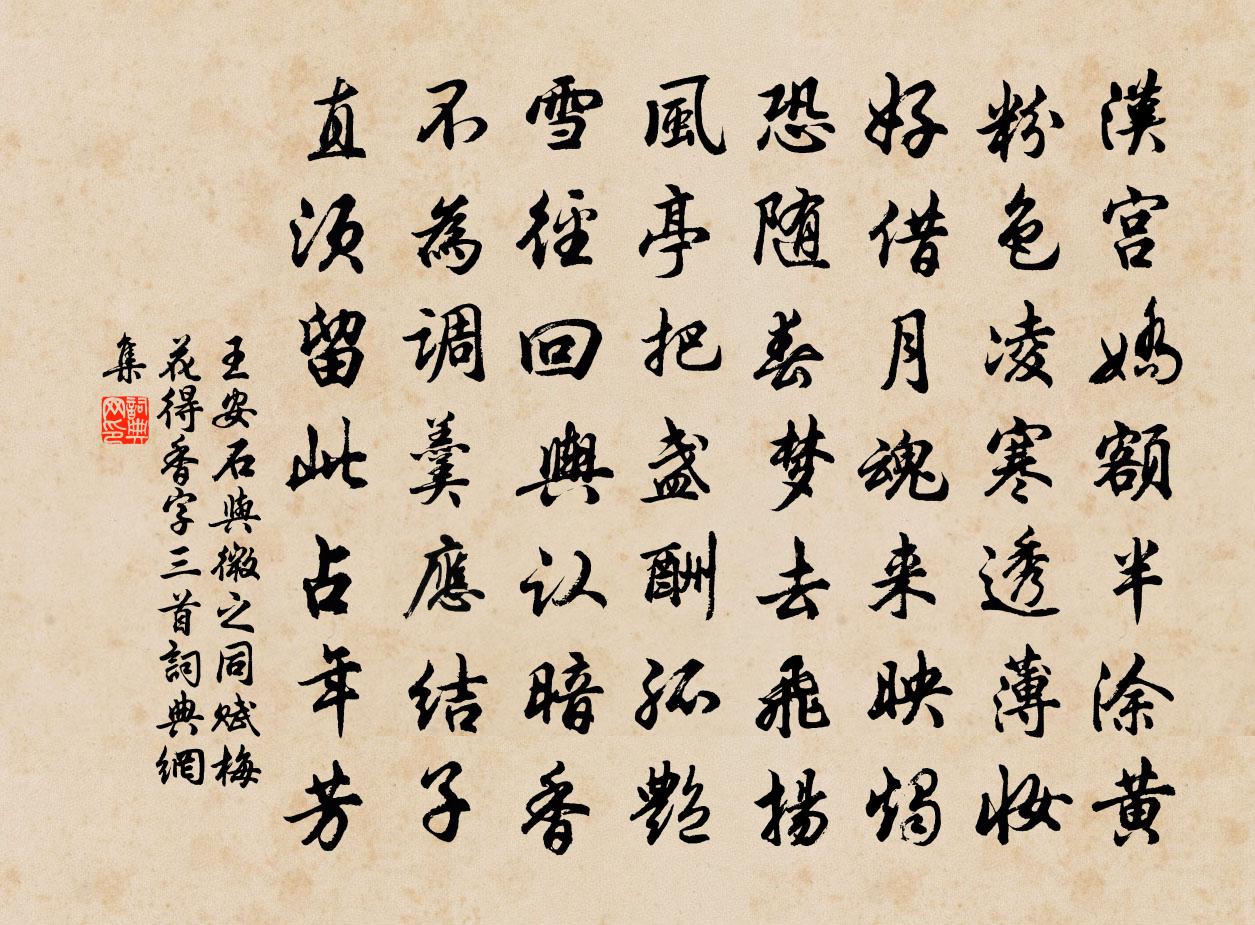 漢宫嬌額半涂黄
粉色凌寒透薄妝
好借月魂来映燭
恐随春梦去飛揚
風亭把盏酬孤艷
雪徑回輿认暗香
不為調羹應結子
直须留此占年芳
王安石與微之同赋梅
花得香字三首詞典網
集
詞典
网印